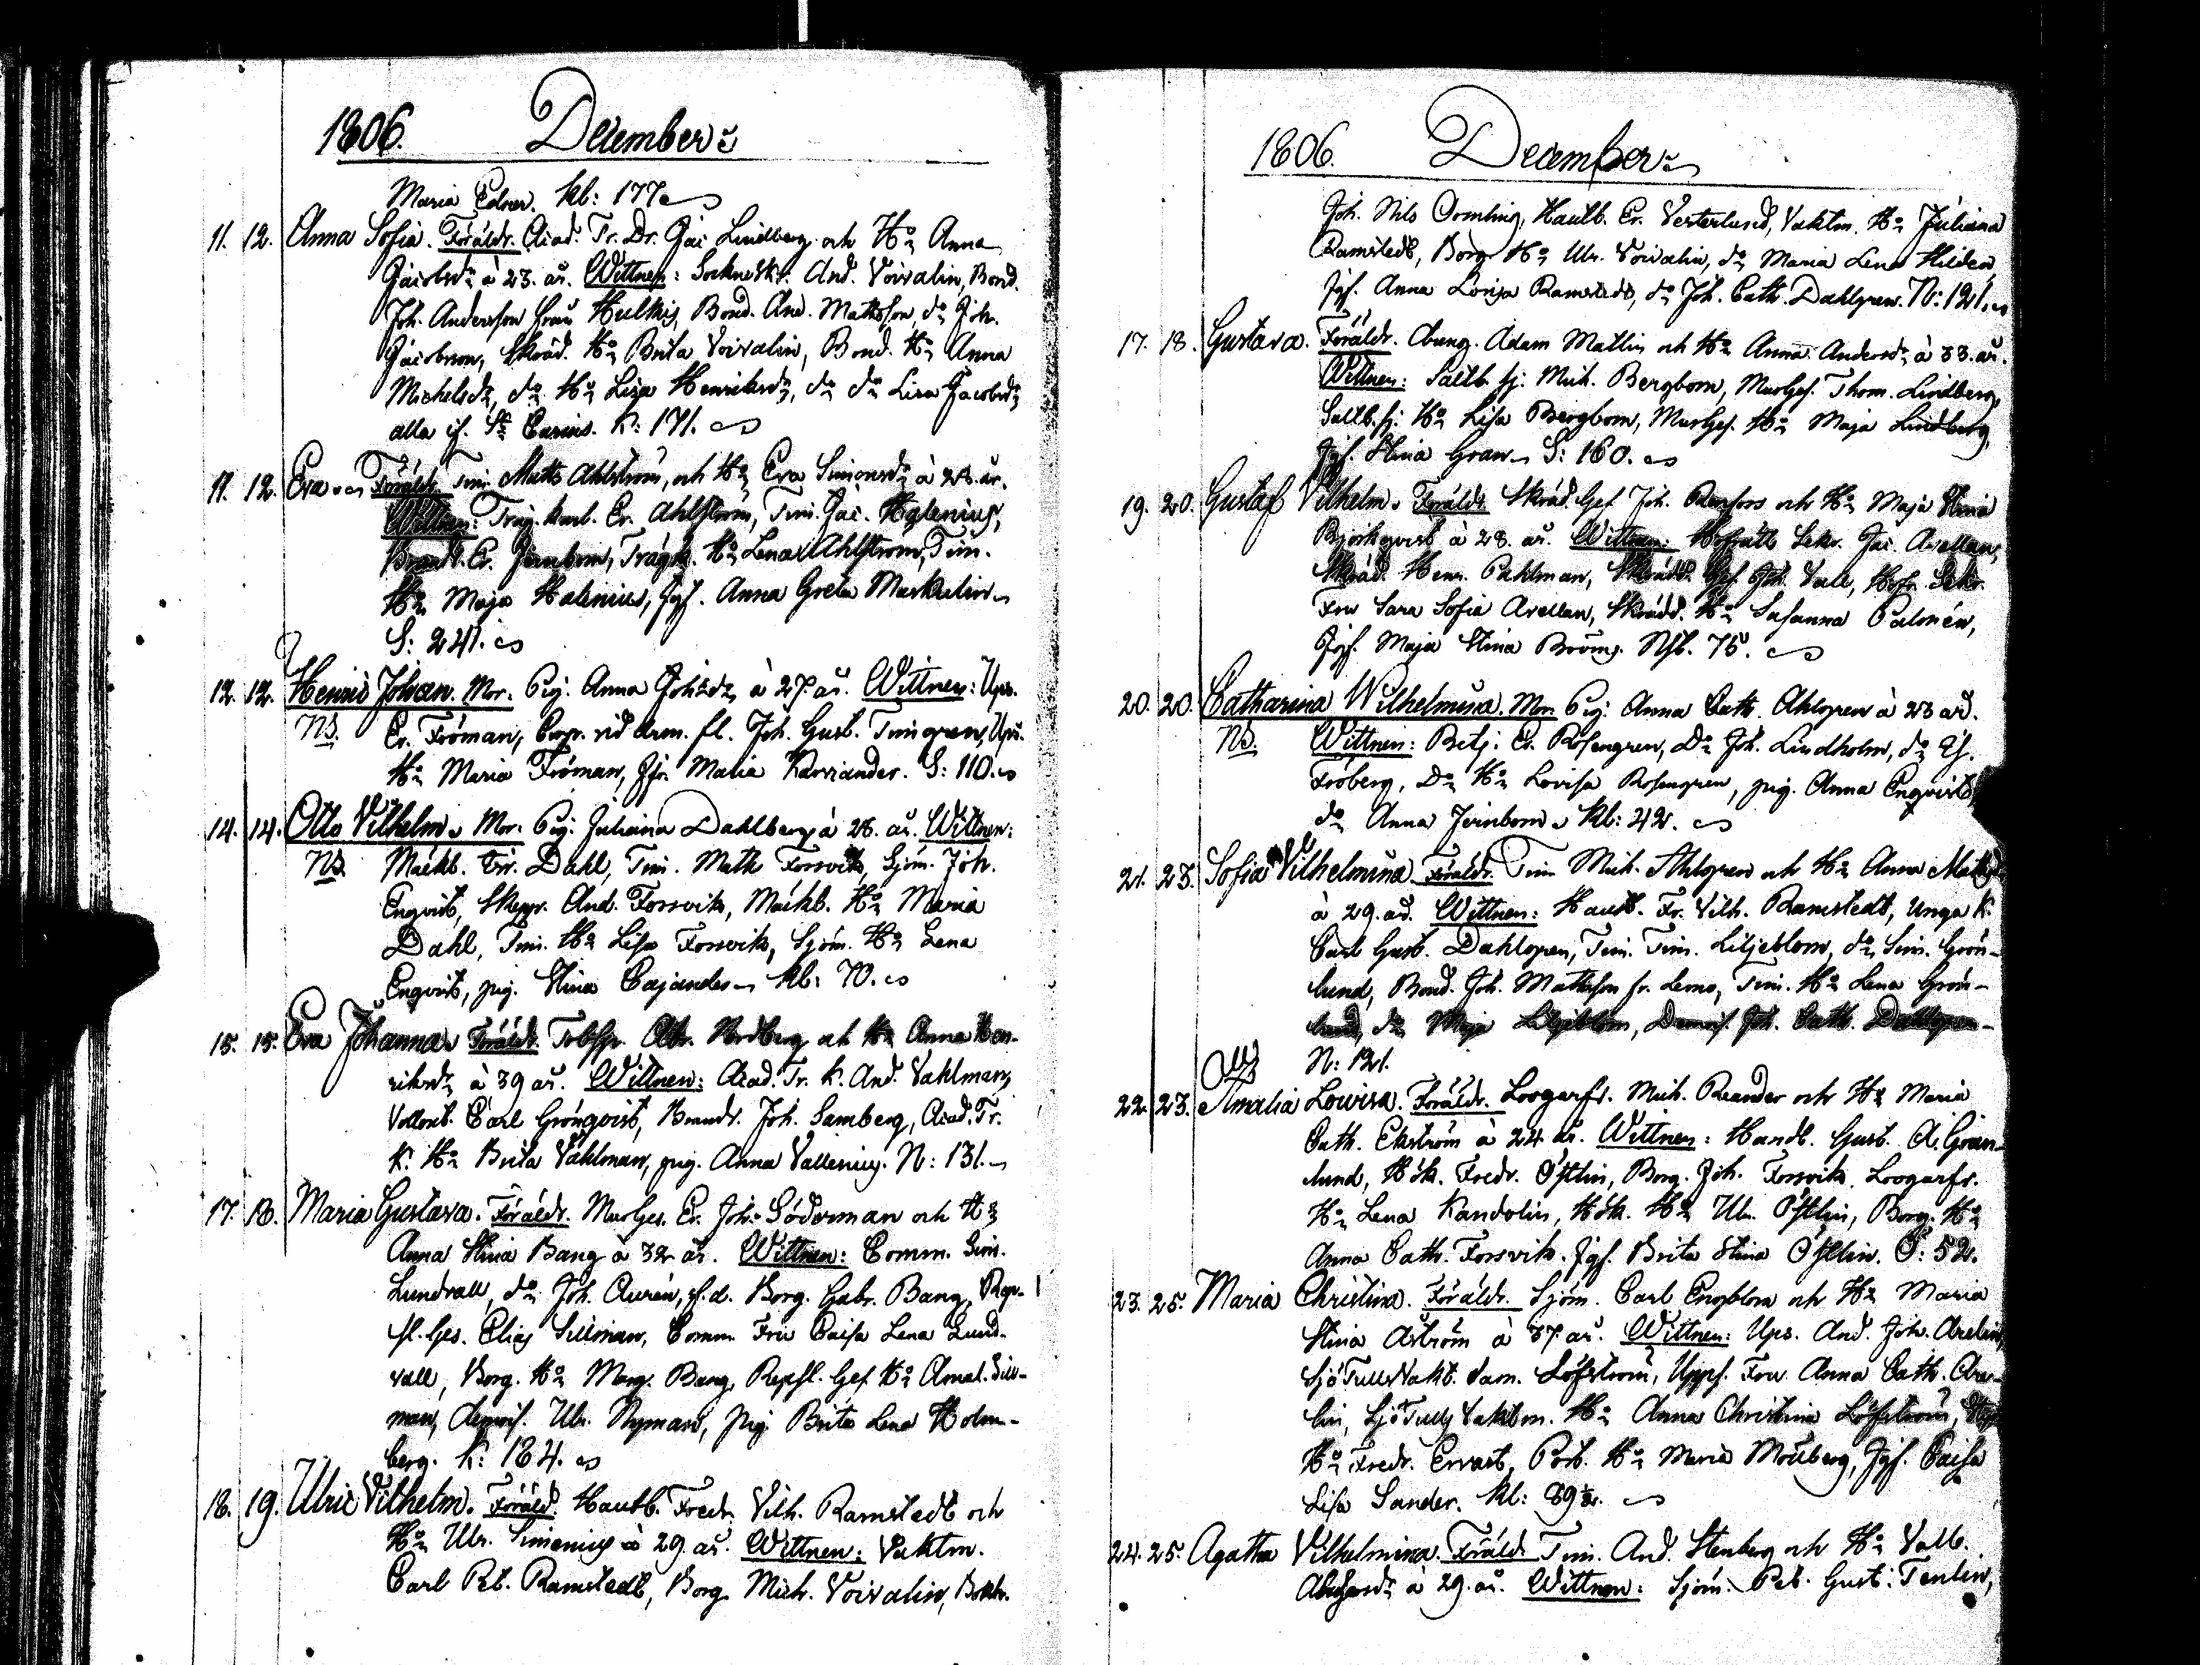 1806. December:
Maria Edner. kl: 177.
11. 12. Anna Sofia. Föräldr. Acad. Tr. Dr. Jac. Lindberg och H:u Anna
Jacobsd:r à 23. år. Wittnen: And. Voivalin, Bond.
Joh. Andersson från Hulkis, Bond. And. Mathsson, d:o Joh.
Jacobsson, Skräd. H:u Brita Voivalin, Bond. H:u Anna
Michelsd:r, d:o H:u Lisa Henriksd:r, d:o d:o Lisa Jacobsd:r
alla if. S:t Carins. K: 171.
11. 12. Eva Föräldr. Tim. Matts Ahlström, och H:u Eva Simonsd:r à 28. år.
Wittnen: Träg. karl. Er. Ahlström, Tim. Jac. Halenius,
Er. Jernbom, Trägk. H:u Lena Ahlström, Tim.
H:u Maja Halenius, Jgf. Anna Greta Markelin
S: 241.
12. 12. Henric Johan. Mor. Pig. Anna Johsd:r à 27. år. Wittnen: Ups.
NB. Er. Fröman, Corp. vid Arm. fl. Joh. Gust. Timgren, Ups.
H:u Maria Fröman, Jfr. Maria S: 110.
14. 14. Otto Vilhelm. Mor. Pig: Juliana Dahlberg à 28. år. Wittnen:
NB Mäklb. Er. Dahl, Tim. Math Forsvik, Sjöm. Joh.
Engvist, Skepp. And. Forsvik, Mäklb. H:u Maria
Dahl, Tim. H:u Lisa Forsvik, Sjöm. H:u Lena
Engvist, pig. Stina Cajander kl: 70.
15. 15. Eva Johanna Föräldr. Abr. Nordberg och H:u Anna Hen-
riksd:r à 39 år. Wittnen: Acad. Tr. K. And. Vahlman,
Carl Grönqvist, Joh. Samberg, Acad. Tr.
K. H:u Brita Vahlman, pig. Anna Vallenius. N: 131.
17. 18. Maria Gustava. Föräldr. MurGes. Er. Joh. Söderman och H:u
Anna Stina Bang à 32 år. Wittnen: Comm. Sim.
Lundvall, d:o Joh. Aurén, f.d. Borg. Gabr. Bang, Rep-
sl. Ges. Elias Sillman, Comm. Fru Caisa Lena Lund-
vall, Borg. H:u Marg. Bang, Repsl. Ges H:u Amal. Sill-
man, demois. Ulr. Nyman, pig. Brita Lena Holm-
berg. K: 184.
18. 19. Ulric Vilhelm. Föräld. Hautb. Fredr. Vilh. Ramstedt och
H:u Ulr. Simenius à 29. år. Wittnen: Vaktm.
Carl Pet. Ramstedt, Borg. Mich. Voivalin,
1806. December:
Joh. Nils Hautb. Er. Vesterlund, Vaktm. H:u Juliana
Ramstedt, Borg. H:u Ulr. Voivalin, d:o Maria Lena Hilden,
Jgf. Anna Lovisa Ramstedt, d:o Joh. Cath. Dahlgren. N: 121.
17. 18. Gustava. Föräldr. Adam Matlin och H:u Anna Andersd:r à 33. år.
Wittnen: Saltb. sj: Mich. Bergbom, MurGes. Thom. Lindberg,
Saltb. sj: H:u Lisa Bergbom, MurGes. H:u Maja Lindberg,
Jgf. Stina Gran. S: 160.
19. 20. Gustaf Vilhelm. Föräldr. Skräd. Gef. Joh. Renfors och H:u Maja Stina
Björkqvist à 28. år. Wittnen: Hofrätts Sekr. Jac. Avellan,
Skräd. Henr. Pahlman, Skrädd. Gef. Joh. Vall, Hofr. Sekr.
Fru Sara Sofia Avellan, Skrädd. H:u Susanna Calonén,
Jgf. Maja Stina Bröms. Nyb. 75.
20. 20. Catharina Wilhelmina. Mor. Pig: Anna Cath. Ahlgren à 23 år.
NB. Wittnen: Betj: Er. Rosengren, D:o Joh. Lindholm, d:o
Fröberg, D:o H:u Lovisa Rosengren, pig. Anna Engvist,
d:o Anna Jernbom. kl: 42.
21. 23. Sofia Vilhelmina Föräldr. Tim. Mich. Ahlgren och H:u Anna
à 29. år. Wittnen: Hautb. Fr. Vilh. Ramstedt, Unga K.
Carl Gust. Dahlgren, Tim. Tim. Liljeblom, d:o Sim. Grön-
lund, Bond. Joh. Mathsson fr. Lemo, Tim. H:u Lena Grön-
lund, d:o Maja Liljeblom, Demois. Joh. Cath. Dahlgren
N: 121.
22. 23. Amalia Lovisa. Föräldr. Mich. Reander och H:u Maria
Cath. Ekström à 24 år. Wittnen: Handl. Gust. A. Grön-
lund, Hök. Fredr. Östlin, Borg. Joh. Forsvik,
H:u Lena Randolin, Hök. H:u Ulr. Östlin, Borg. H:u
Anna Cath. Forsvik, Jgf. Brita Stina Östlin. S: 52.
23. 25. Maria Christina. Föräldr. Sjöm. Carl Engblom och H:u Maria
Stina Åström à 37. år. Wittnen: Ups. And. Joh. Arelin,
SjöTullsVakt. Sam. Löfström, Upps. Fru Anna Cath. Are-
lin, SjöTulls Vaktm. H:u Anna Christina Löfström,
H:u Fredr. Ervast, H:u Maria Jgf. Caisa
Lisa Sander. kl: 89½.
24. 25. Agatha Vilhelmina. Föräldr. Tim. And. Stenberg och H:u Valb.
à 29. år. Wittnen: Sjöm. Pet. Gust: Tenlin,